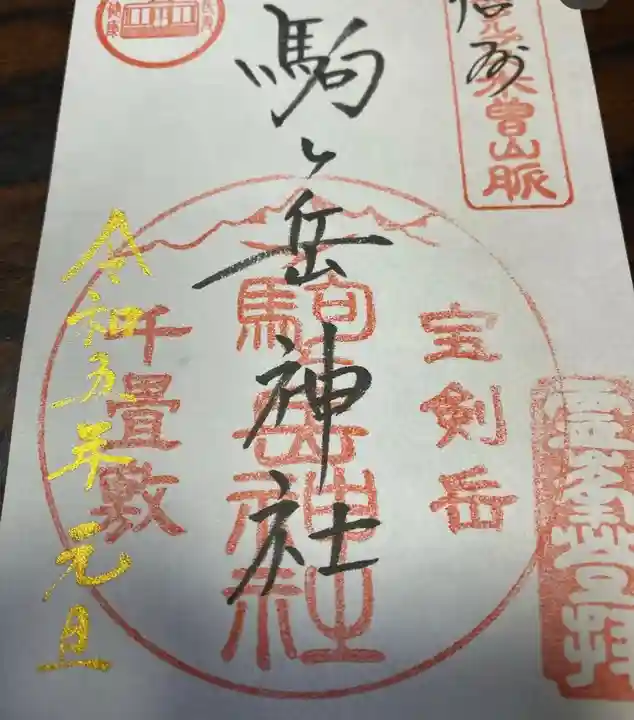 信州
木曽山脈
駒ヶ岳神社
宝剣岳
駒ヶ岳神社
千畳敷
令和五年元旦
登拝
健康